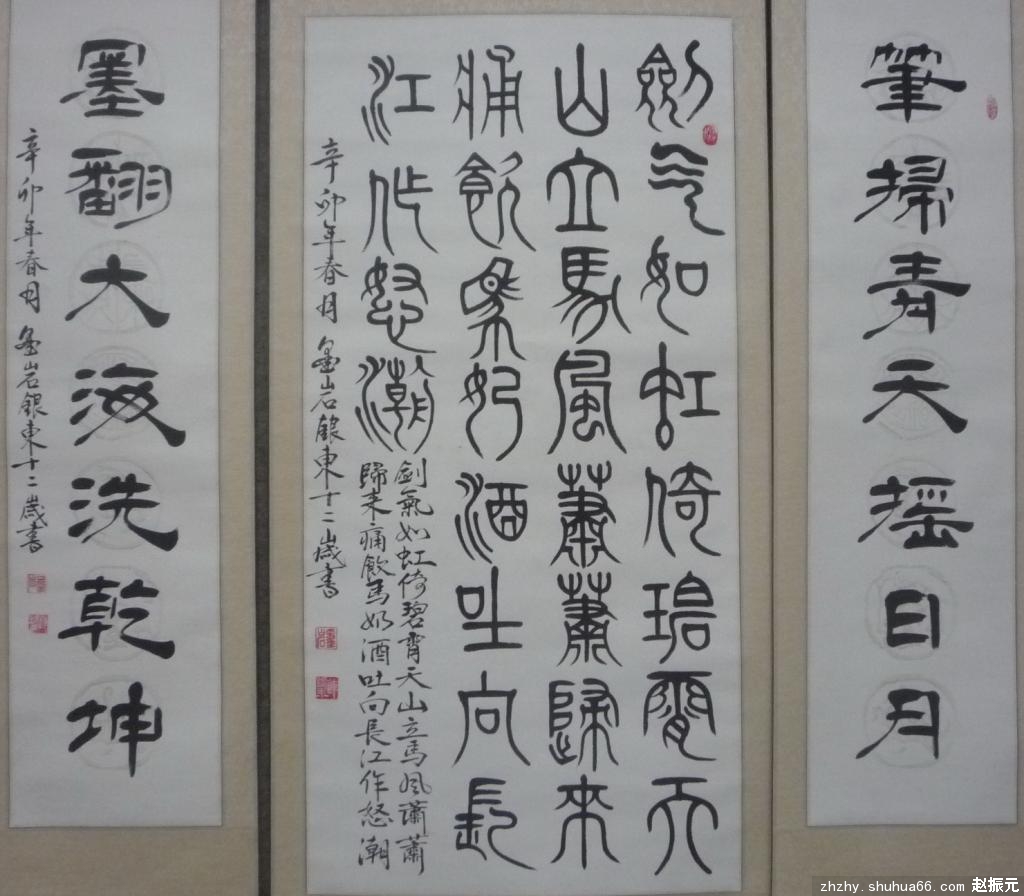 筆掃青天摇日月
劍气如虹倚碧霄天
山立馬風蕭蕭歸來
痛飲馬奶酒吐向長
江作怒潮
劍氣如虹倚碧霄天山立馬風蕭蕭
歸来痛飲馬奶酒吐向長江作怒潮
辛卯年春月 岩銀東十二歲書
墨翻大海洗乾坤
辛卯年春月 岩銀東十二歲書
zhzhy.shuhua66.com 赵振元